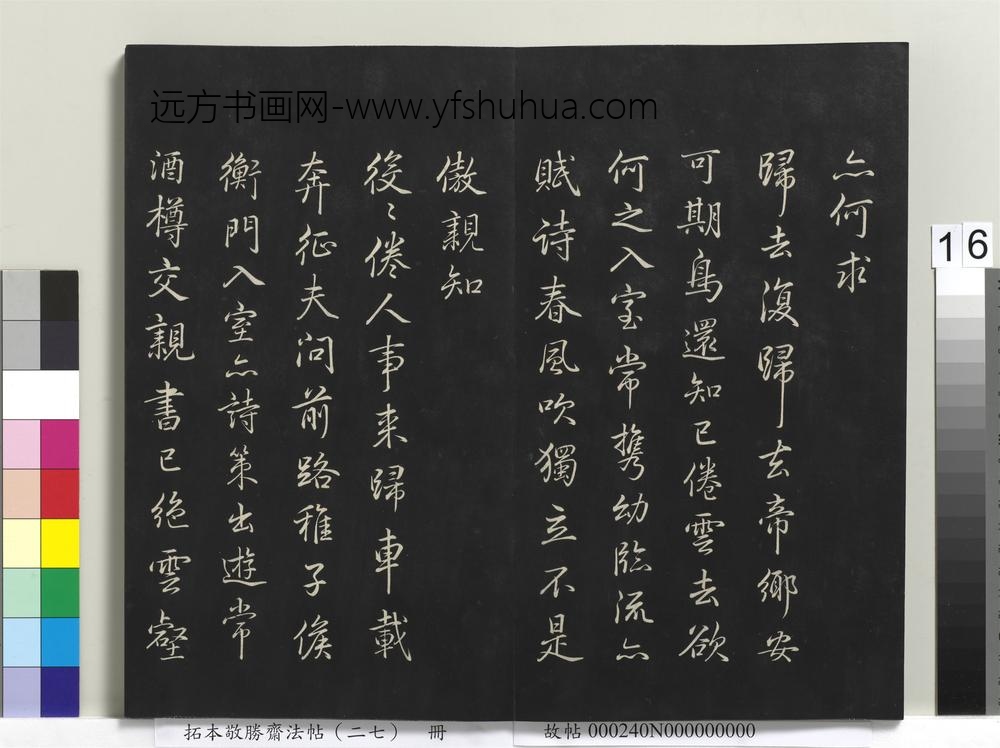 远方书画网-www.yfshuhua.com
亦何求
歸去復歸去帝鄉安
可期鳥還知已倦雲去欲
何之入室常攜幼臨流亦
賦诗春風吹獨立不是
傲親知
役〻倦人事来歸車載
奔征夫问前路稚子候
衡門入室亦詩策出遊常
酒樽交親書已绝雲壑
16
拓本敬勝齋法帖（二七） 冊
故帖 000240N000000000